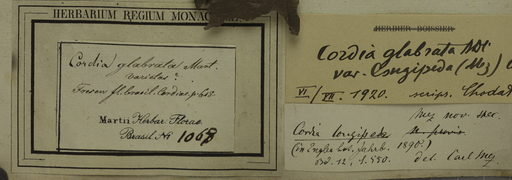 HERBARIUM REGIUM MONAC
Cordia glabrata Mart.
varietas?
Fresen. fl. brasil. Cordiac. p.
Martii Herbar. Florae
Brasil. No 1069
HERBIER BOISSIER
Cordia glabrata ADC
var. longipeda (Mez)
VI/VII. 1920. scrips. Chodat
Mez nov. spec.
Cordia longipeda
(in Engler bot. Jahrb. 1890
Bd. 12, p. 550. det. Carl Mez